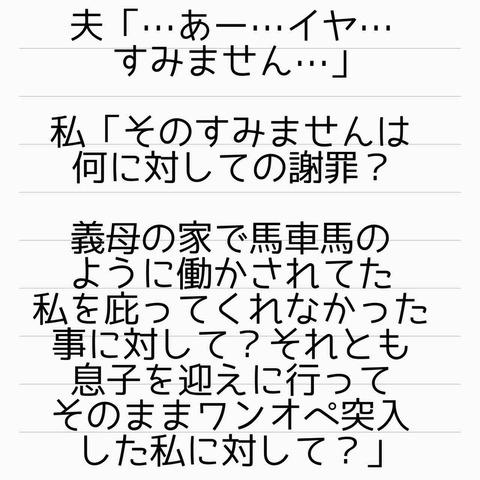 夫「…あー…イヤ…
すみません…」
私「そのすみませんは
何に対しての謝罪？
義母の家で馬車馬の
ように働かされてた
私を庇ってくれなかった
事に対して？それとも
息子を迎えに行って
そのままワンオペ突入
した私に対して？」